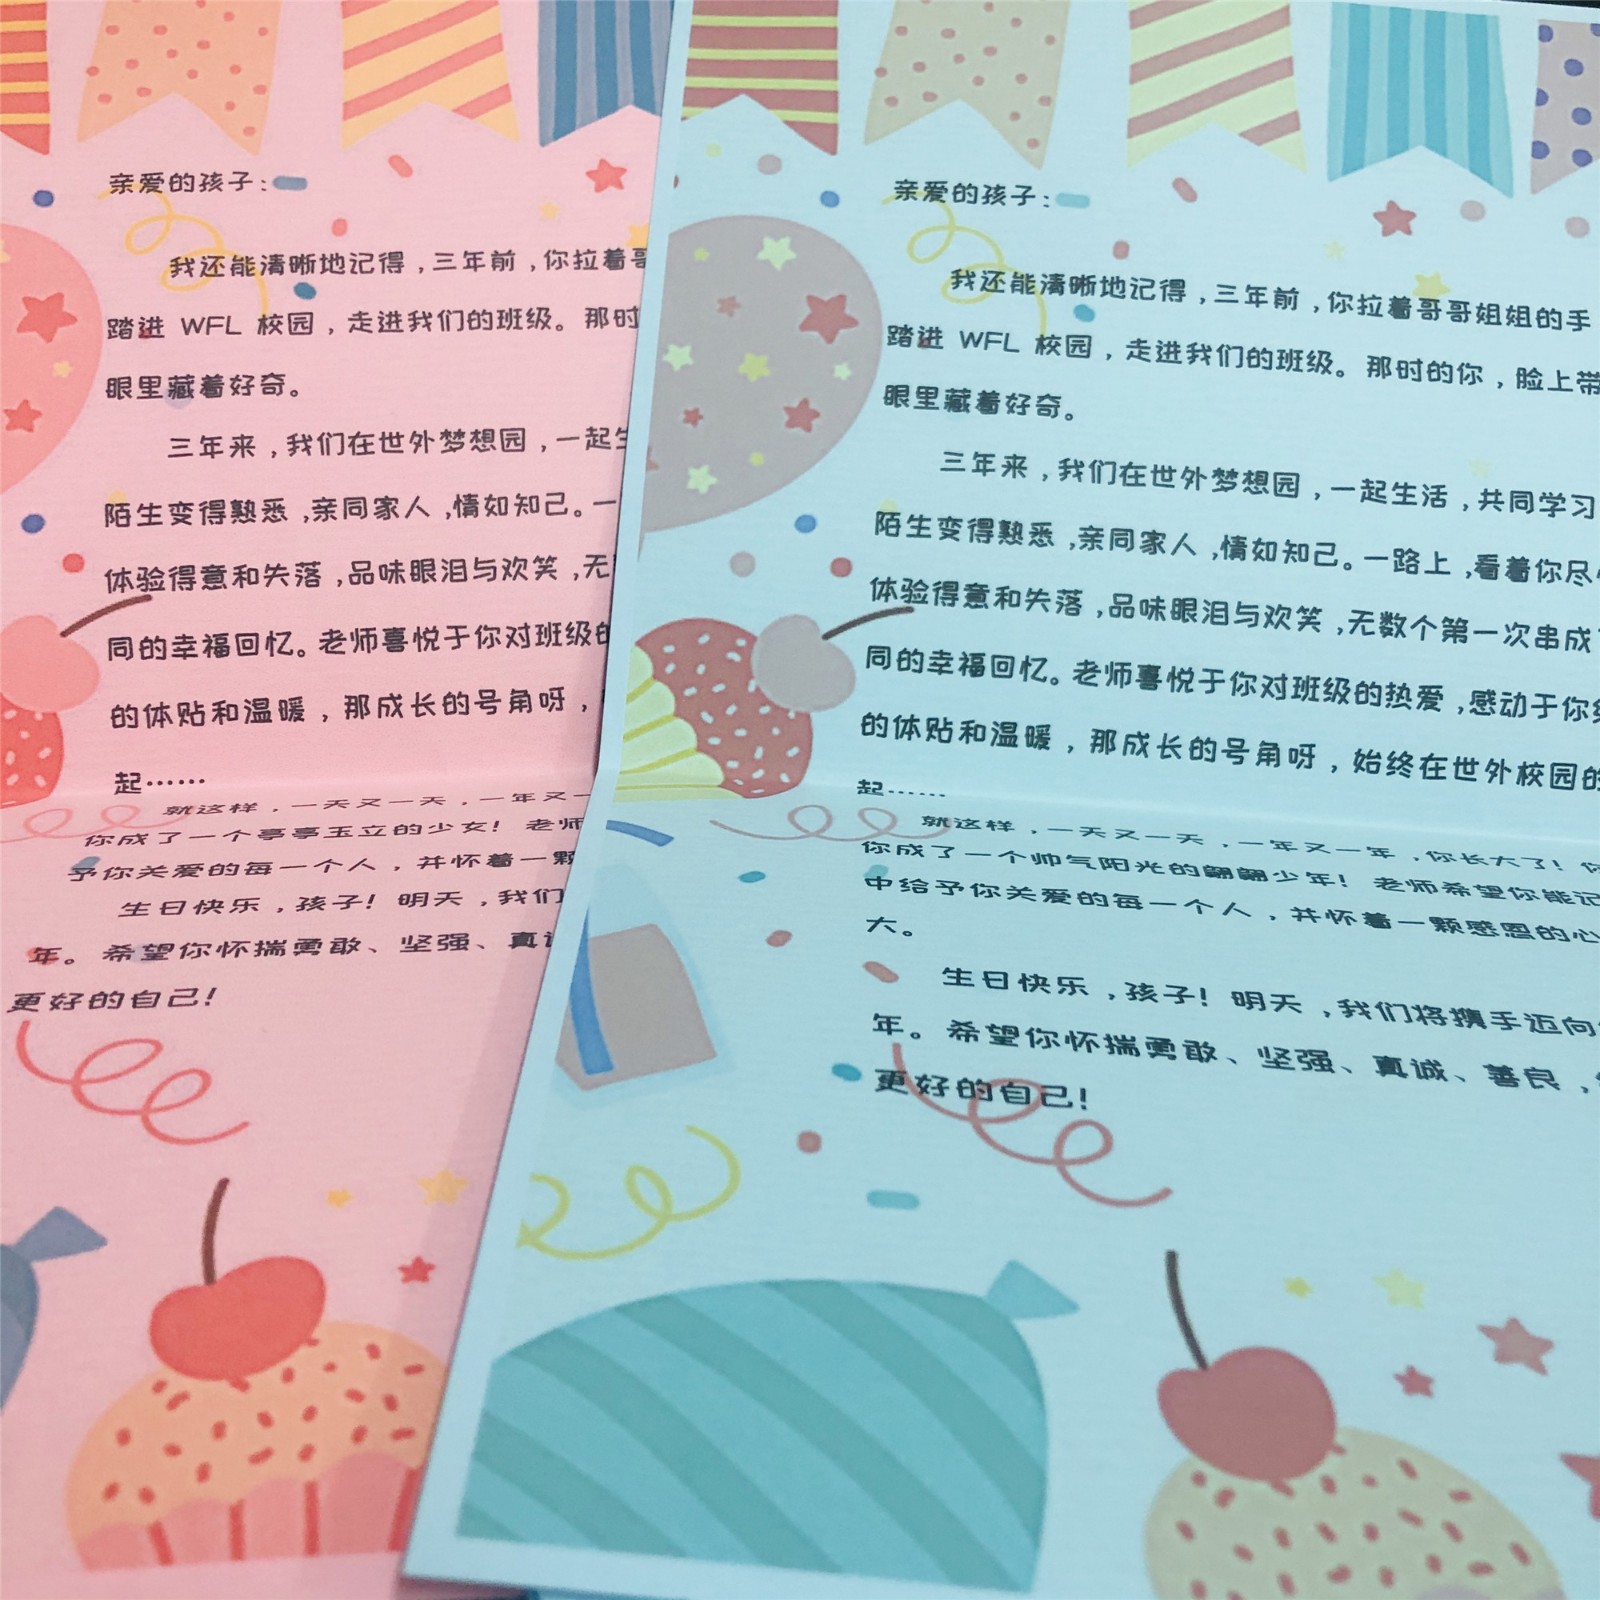 亲爱的孩子:
我还能清晰地记得,三年前,你拉着
踏进 WFL 校园,走进我们的班级。那时
眼里藏着好奇。
三年来,我们在世外梦想园,一起
陌生变得熟悉,亲同家人,情如知己。一
体验得意和失落,品味眼泪与欢笑,无
同的幸福回忆。老师喜悦于你对班级
的体贴和温暖,那成长的号角呀,
起……
就这样,一天又一天,一年又一
你成了一个亭亭玉立的少女!老师
予你关爱的每一个人,并怀着一颗
生日快乐,孩子!明天,我们
年。希望你怀揣勇敢、坚强、真
更好的自己!
亲爱的孩子:
我还能清晰地记得,三年前,你拉着哥哥姐姐的手
踏进 WFL 校园,走进我们的班级。那时的你,脸上带
眼里藏着好奇。
三年来,我们在世外梦想园,一起生活,共同学习
陌生变得熟悉,亲同家人,情如知己。一路上,看着你尽
体验得意和失落,品味眼泪与欢笑,无数个第一次串成
同的幸福回忆。老师喜悦于你对班级的热爱,感动于你
的体贴和温暖,那成长的号角呀,始终在世外校园的
起……
就这样,一天又一天,一年又一年,你长大了!
你成了一个帅气阳光的翩翩少年!老师希望你能记
中给予你关爱的每一个人,并怀着一颗感恩的心
大。
生日快乐,孩子!明天,我们将携手迈向
年。希望你怀揣勇敢、坚强、真诚、善良,
更好的自己!